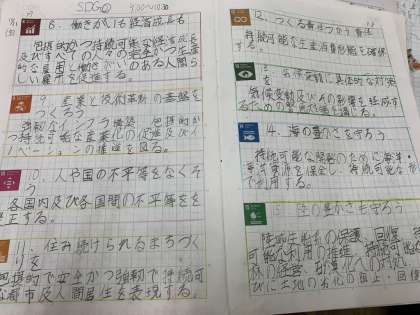 SDGs
8. 働きがいも経済成長も
包摂的かつ持続可能な経済成長
及びすべての人々の完全かつ生産
的な雇用と働きがいのある人間ら
しい雇用を促進する。
9. 産業と技術革新の基盤を
つくろう
強靭なインフラ構築 包摂的か
つ持続可能な産業化の促進及びイ
ノベーションの推進を図る。
10. 人や国の不平等をなくそ
う
各国内及び各国間の不平等を
是正する。
11. 住み続けられるまちづく
りを
包摂的で安全かつ強靭で持続可
な都市及人間居住を表現する。
12. つくる責任つかう責任
持続可能な生産消費形態を確保
する。
に具体的な対策
気候変動及びその影響を軽減す
るための
14. 海の豊かさを守ろう
持続可能な開発のために海洋・
海洋資源を保全し、持続可能なか
で利用する。
陸の豊かさも守ろう
陸域生態系の保護、回復、持
可能な利用の推進、持続可能な
林の経営、砂漠化への対処、
びに土地の劣化の阻止・回復